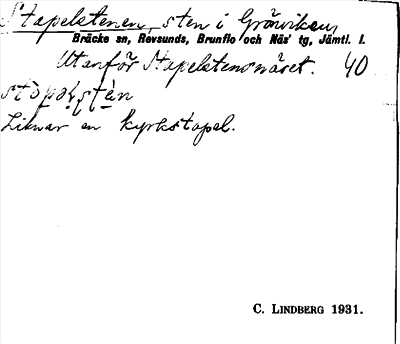 Stapelstenen, sten i Grönviken,
Bräcke sn, Revsunds, Brunflo och Näs' tg, Jämtl. l.
Utanför Stapelstensnäset. 40
Liknar en kyrkstapel.
C. LINDBERG 1931.